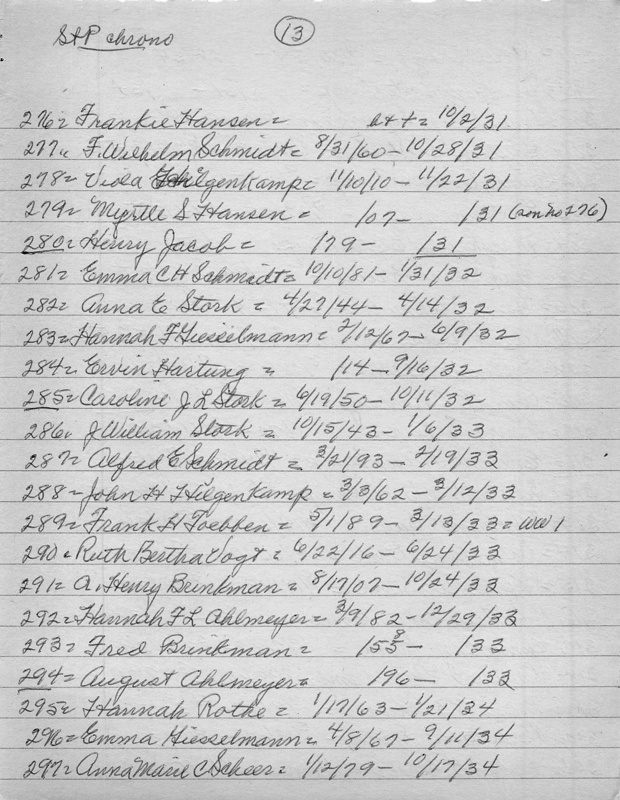 StP chrono
13
276= Frankie Hansen = b + t = 10/2/31
277= F. Wilhelm Schmidt = 8/31/60 – 10/28/31
278= Viola Hilgenkamp = 11/10/10 – 11/22/31
279= Myrtle S Hansen = /07 – /31 (son no 276)
280= Henry Jacob = /79 – /31
281= Emma C H Schmidt = 10/10/81 – 1/31/32
282= Anna E Stork = 4/27/44 – 4/14/32
283= Hannah F Giesselmann = 2/12/67 – 6/9/32
284= Ervin Hartung = /14 – 9/16/32
285= Caroline J L Stork = 6/19/50 – 10/11/32
286= J William Stork = 10/15/43 – 1/6/33
287= Alfred E Schmidt = 3/21/93 – 2/19/33
288= John H Hilgenkamp = 3/3/62 – 3/12/33
289= Frank H Toebben = 5/1/89 – 3/13/33 = WW 1
290= Ruth Bertha Vogt = 6/22/16 – 6/24/33
291= A. Henry Brinkman = 8/17/07 – 10/24/33
292= Hannah F L Ahlmeyer = 3/9/82 – 12/29/33
293= Fred Brinkman = /55 8 – /33
294= August Ahlmeyer = /96 – /33
295= Hannah Rothe = 1/17/63 – 1/21/34
296= Emma Giesselmann = 4/8/67 – 9/11/34
297= Anna Marie C Scheer = 1/12/79 – 10/17/34